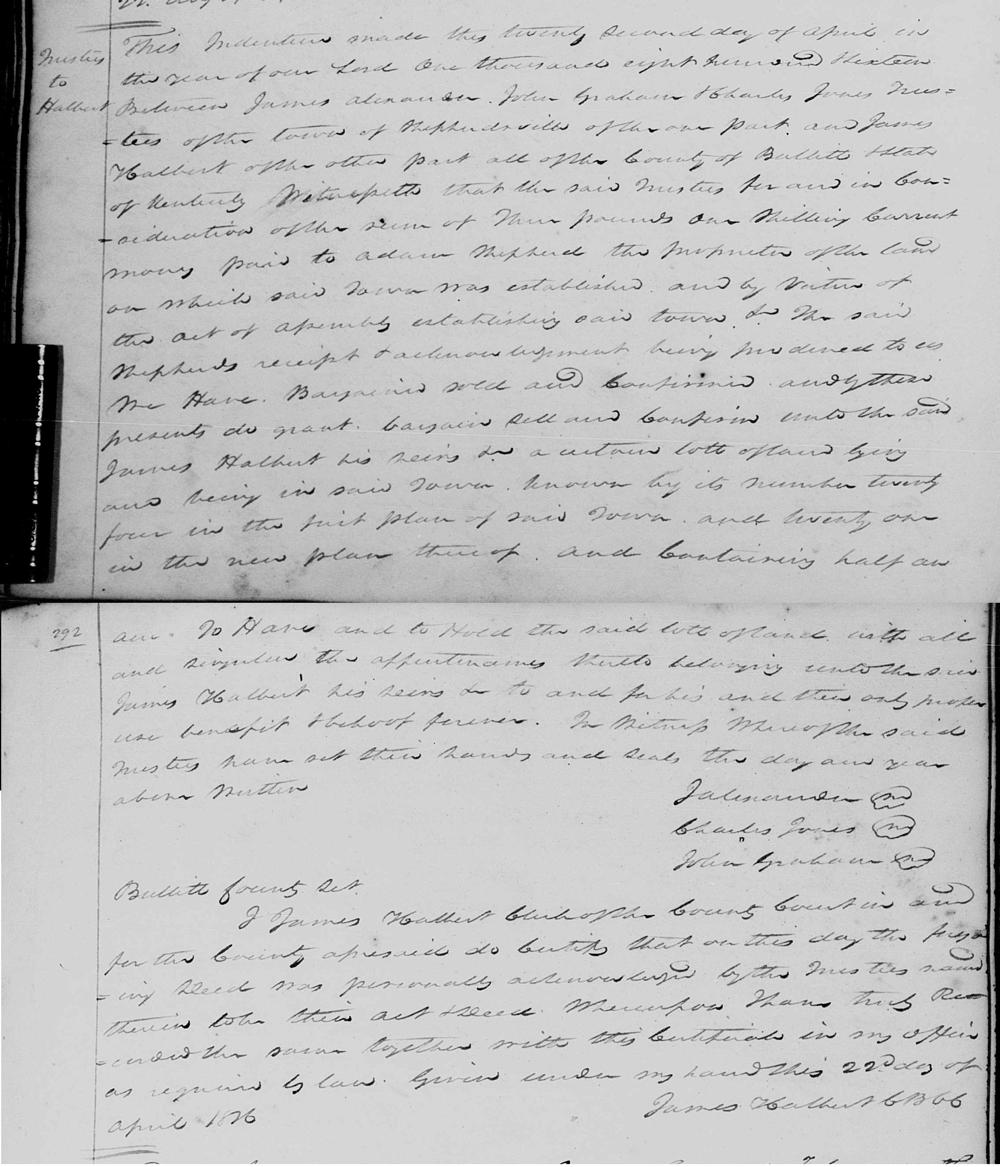 Trustees
to
Halbert
This Indenture made this twenty second day of april in
the year of our Lord One thousand eight hundred & sixteen
Between James alexander. John Graham & Charles Jones Trus=
=tees of the town of Shepherdsville of the one part. and James
Halbert of the other part all of the County of Bullitt & State
of Kentucky Witnesseth that the said Trustees for and in Con=
=sideration of the sum of Three pounds One Shilling Current
money paid to adam Shepherd the proprietor of the land
on which said Town was established. and by virtue of
the act of assembly establishing said town &c The said
Shepherds receipt & acknowledgement being produced to us
We Have. Bargained sold and Confirmed. and by these
presents do grant. bargain sell and Confirm unto the said
James Halbert his heirs &c a certain lott of land lying
and being in said Town. known by its number twenty
four in the first plan of said Town. and twenty one
in the new plan thereof. and Containing half an
292
acre. To Have and to Hold the said lott of land. with all
and singular the appurtenances thereto belonging unto the said
James Halbert his heirs &c to and for his and their only proper
use benefit & behoof forever. In Witness Whereof the said
Trustees have set their hands and seals the day and year
above Written
J alexander
Charles Jones
John Graham
Bullitt County Sct
I James Halbert Clerk of the County Court in and
for the County aforesaid do Certify that on this day the forego
=ing Deed was personally acknowledged by the Trustees named
therein to be their act & deed. Whereupon I have truly Re=
=corded the same together with this Certificate in my Office
as required by law. Given under my hand this 22d day of
April 1816
James Halbert C B C C